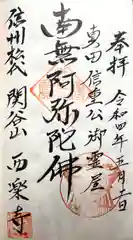 奉拝
令和四年五月十二日
真田信重公御霊屋
南無阿弥陀佛
信州松代
関谷山 西楽寺